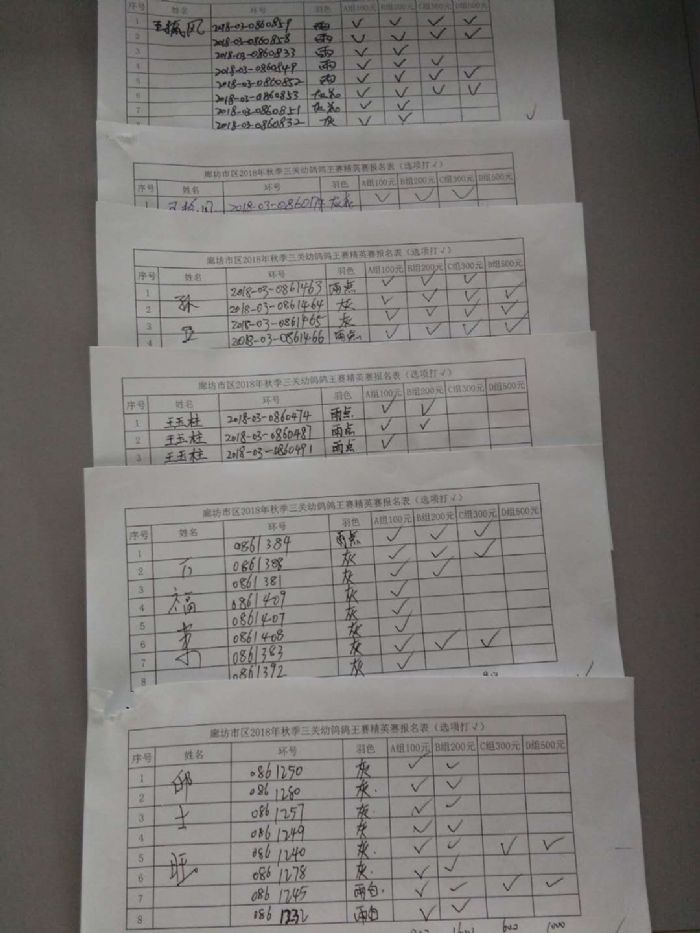 序号 姓名 环号 羽色 A组100元 B组200元 C组300元 D组500元
1 2018-03-0860859 雨 ✓ ✓ ✓ ✓
2 2018-03-0860858 雨 ✓ ✓ ✓ ✓
3 2018-03-0860833 雨 ✓ ✓
4 2018-03-0860849 雨 ✓ ✓ ✓
5 2018-03-0860852 雨 ✓ ✓ ✓ ✓
6 2018-03-0860853 ✓ ✓ ✓ ✓
7 2018-03-0860851 ✓ ✓
8 2018-03-0860832 灰 ✓ ✓
廊坊市区2018年秋季三关幼鸽鸽王赛精英赛报名表（选项打√）
序号 姓名 环号 羽色 A组100元 B组200元 C组300元 D组500元
1 ✓ ✓ ✓
廊坊市区2018年秋季三关幼鸽鸽王赛精英赛报名表（选项打√）
序号 姓名 环号 羽色 A组100元 B组200元 C组300元 D组500元
1 2018-03-0861463 雨点 ✓ ✓ ✓
2 孙 2018-03-0861464 灰 ✓ ✓ ✓ ✓
3 2018-03-0861465 灰 ✓ ✓ ✓ ✓
4 2018-03-0861466 雨点 ✓ ✓ ✓ ✓
廊坊市区2018年秋季三关幼鸽鸽王赛精英赛报名表（选项打√）
序号 姓名 环号 羽色 A组100元 B组200元 C组300元 D组500元
1 王玉柱 2018-03-0860474 雨点 ✓ ✓
2 王玉柱 2018-03-0860487 雨点 ✓ ✓
3 王玉柱 2018-03-0860491 雨点 ✓
廊坊市区2018年秋季三关幼鸽鸽王赛精英赛报名表（选项打√）
序号 姓名 环号 羽色 A组100元 B组200元 C组300元 D组500元
1 0861384 雨点 ✓ ✓ ✓
2 0861388 灰 ✓ ✓ ✓
3 0861381 灰 ✓ ✓
4 福 0861409 灰 ✓
5 0861407 灰 ✓
6 0861408 灰 ✓
7 0861383 灰 ✓ ✓ ✓
8 0861392 灰 ✓
廊坊市区2018年秋季三关幼鸽鸽王赛精英赛报名表（选项打√）
序号 姓名 环号 羽色 A组100元 B组200元 C组300元 D组500元
1 邱 0861250 灰 ✓ ✓
2 0861280 灰 ✓ ✓
3 士 0861257 灰 ✓ ✓
4 0861249 灰 ✓ ✓
5 0861240 灰 ✓ ✓ ✓ ✓
6 旺 0861278 灰 ✓ ✓
7 0861245 雨白 ✓ ✓ ✓ ✓
8 0861232 雨白 ✓ ✓
600 1000